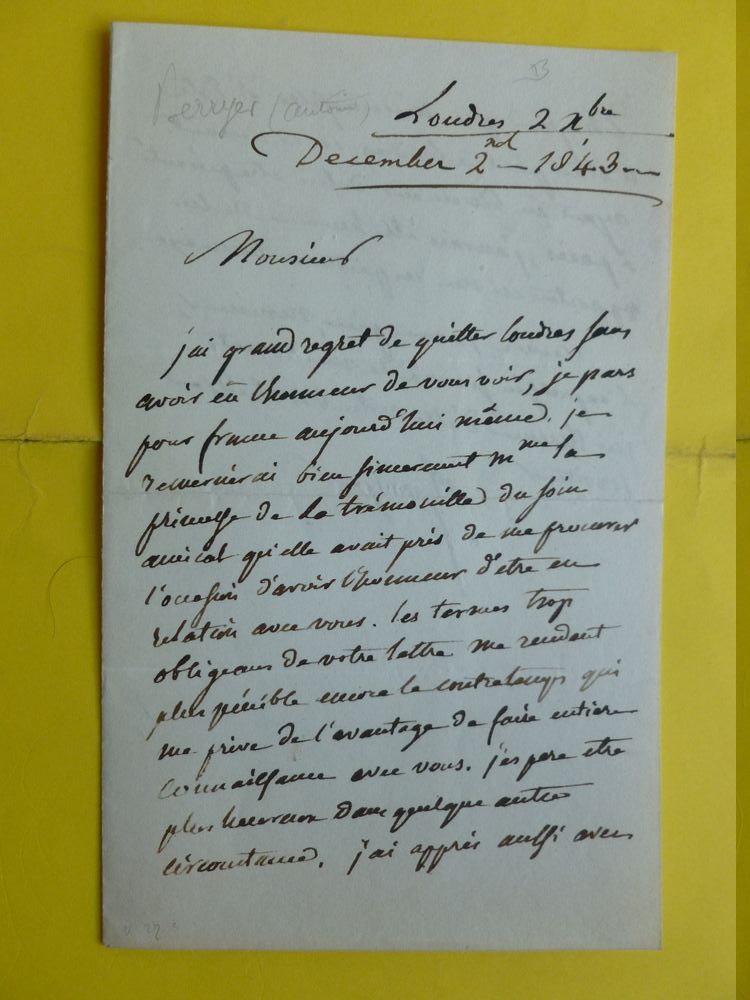 Berryer (antoine)
B
Londres 2 Xbre
December 2nd – 1843 –
Monsieur
j'ai grand regret de quitter londres sans
avoir eû l'honneur de vous voir, je pars
pour france aujourd'hui même. je
remercierai bien sincerement mme la
princesse de la trémouille du soin
amical qu'elle avait pris de me procurer
l'occasion d'avoir l'honneur d'etre en
relation avec vous. les termes trop
obligeans de votre lettre me rendent
plus pénible encore le contretemps qui
me prive de l'avantage de faire entiere
connaissance avec vous. j'espere etre
plus heureux dans quelque autre
circonstance. j'ai appris aussi avec